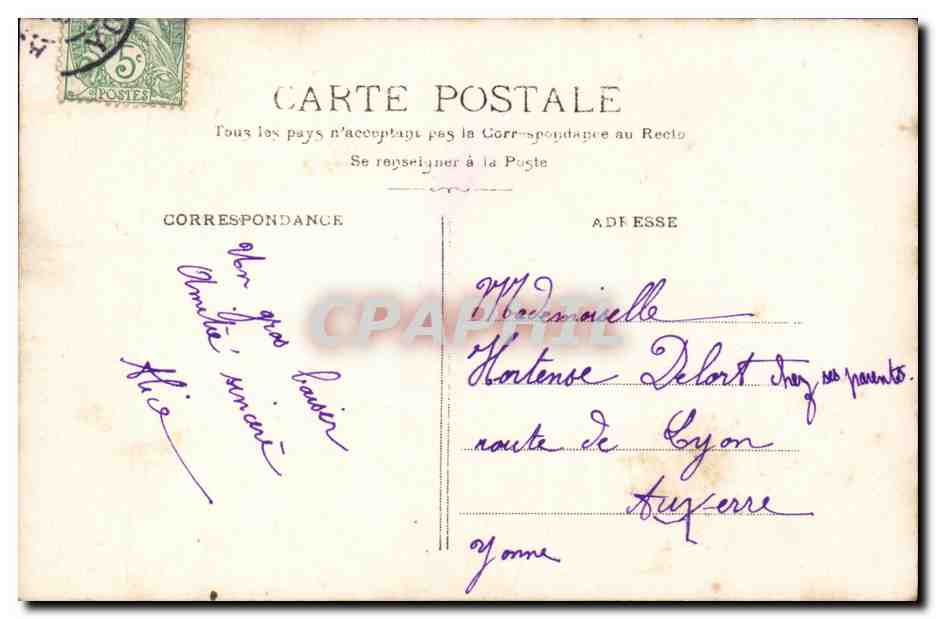 5c
POSTES
YO
CARTE POSTALE
Tous les pays n'acceptant pas la Correspondance au Recto
Se renseigner à la Poste
CORRESPONDANCE
ADRESSE
Un gros baiser
Amitié sincère
Alice
Mademoiselle
Hortense Delort chez ses parents.
route de Lyon
Auxerre
Yonne
CPAPHIL